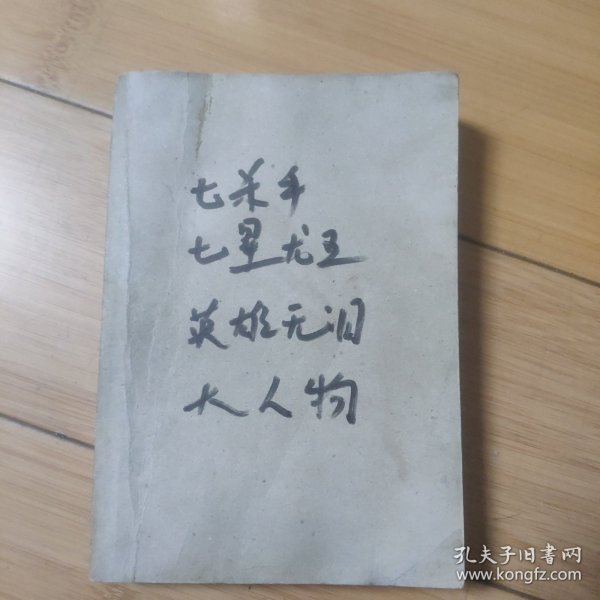 七杀手
七星龙王
英雄无泪
大人物
孔夫子旧书网
www.kongfz.com